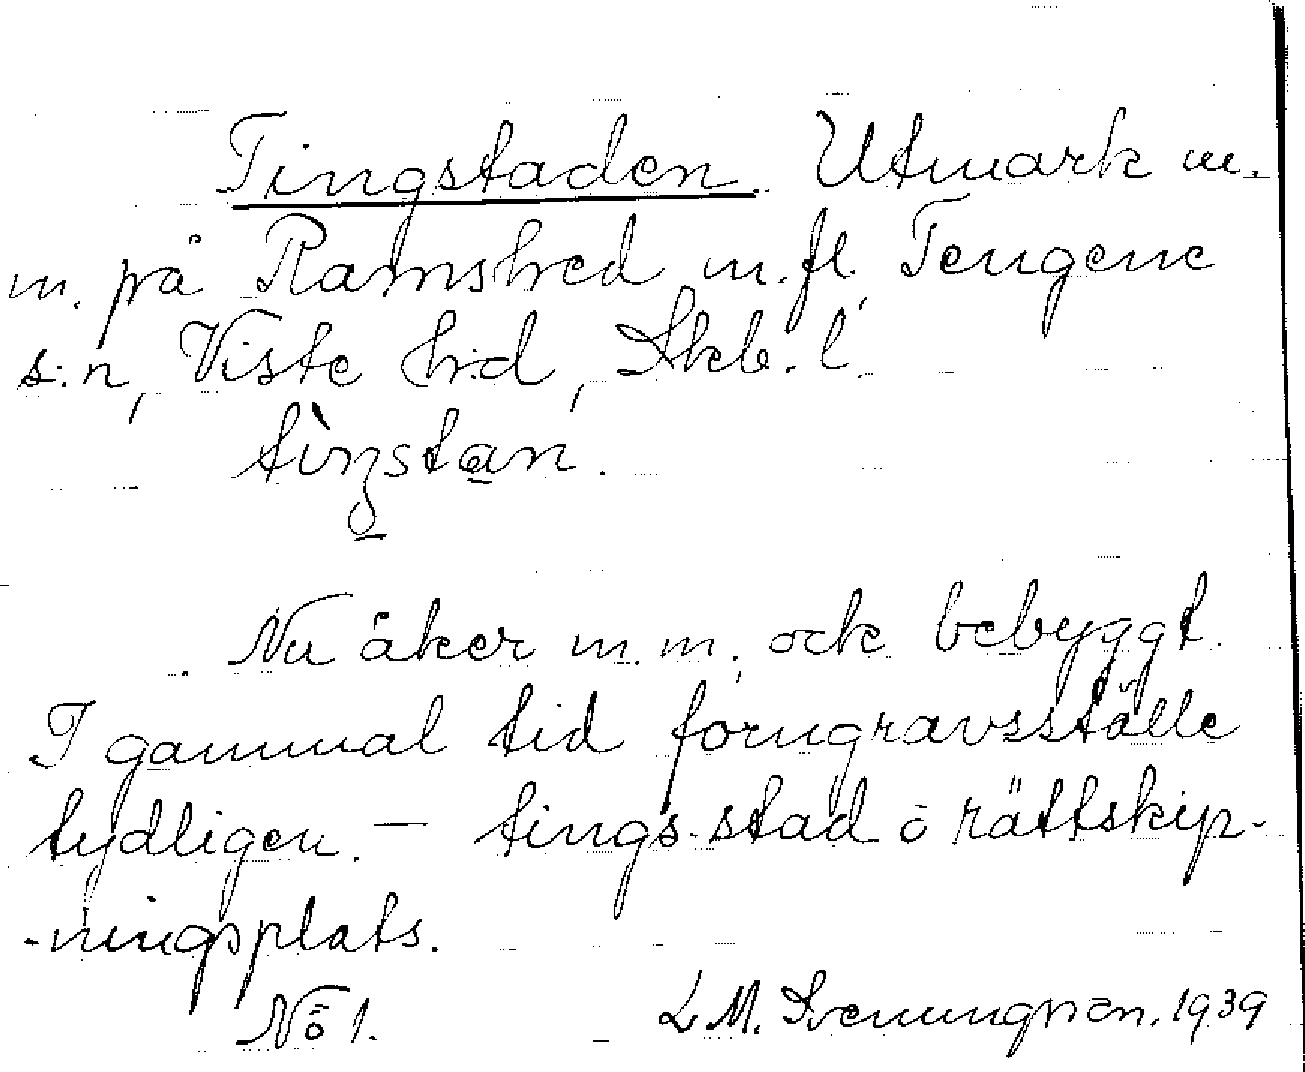 Tingstaden. Utmark m.
m. på Ramshed m.fl. Tengene
s:n, Viste h:d, Skb. l.
Nu åker m.m., ock bebyggt.
I gammal tid forngravsställe
tydligen. — tings-stad o rättskip-
-ningsplats.
No 1. L M. Svenungsson. 1939